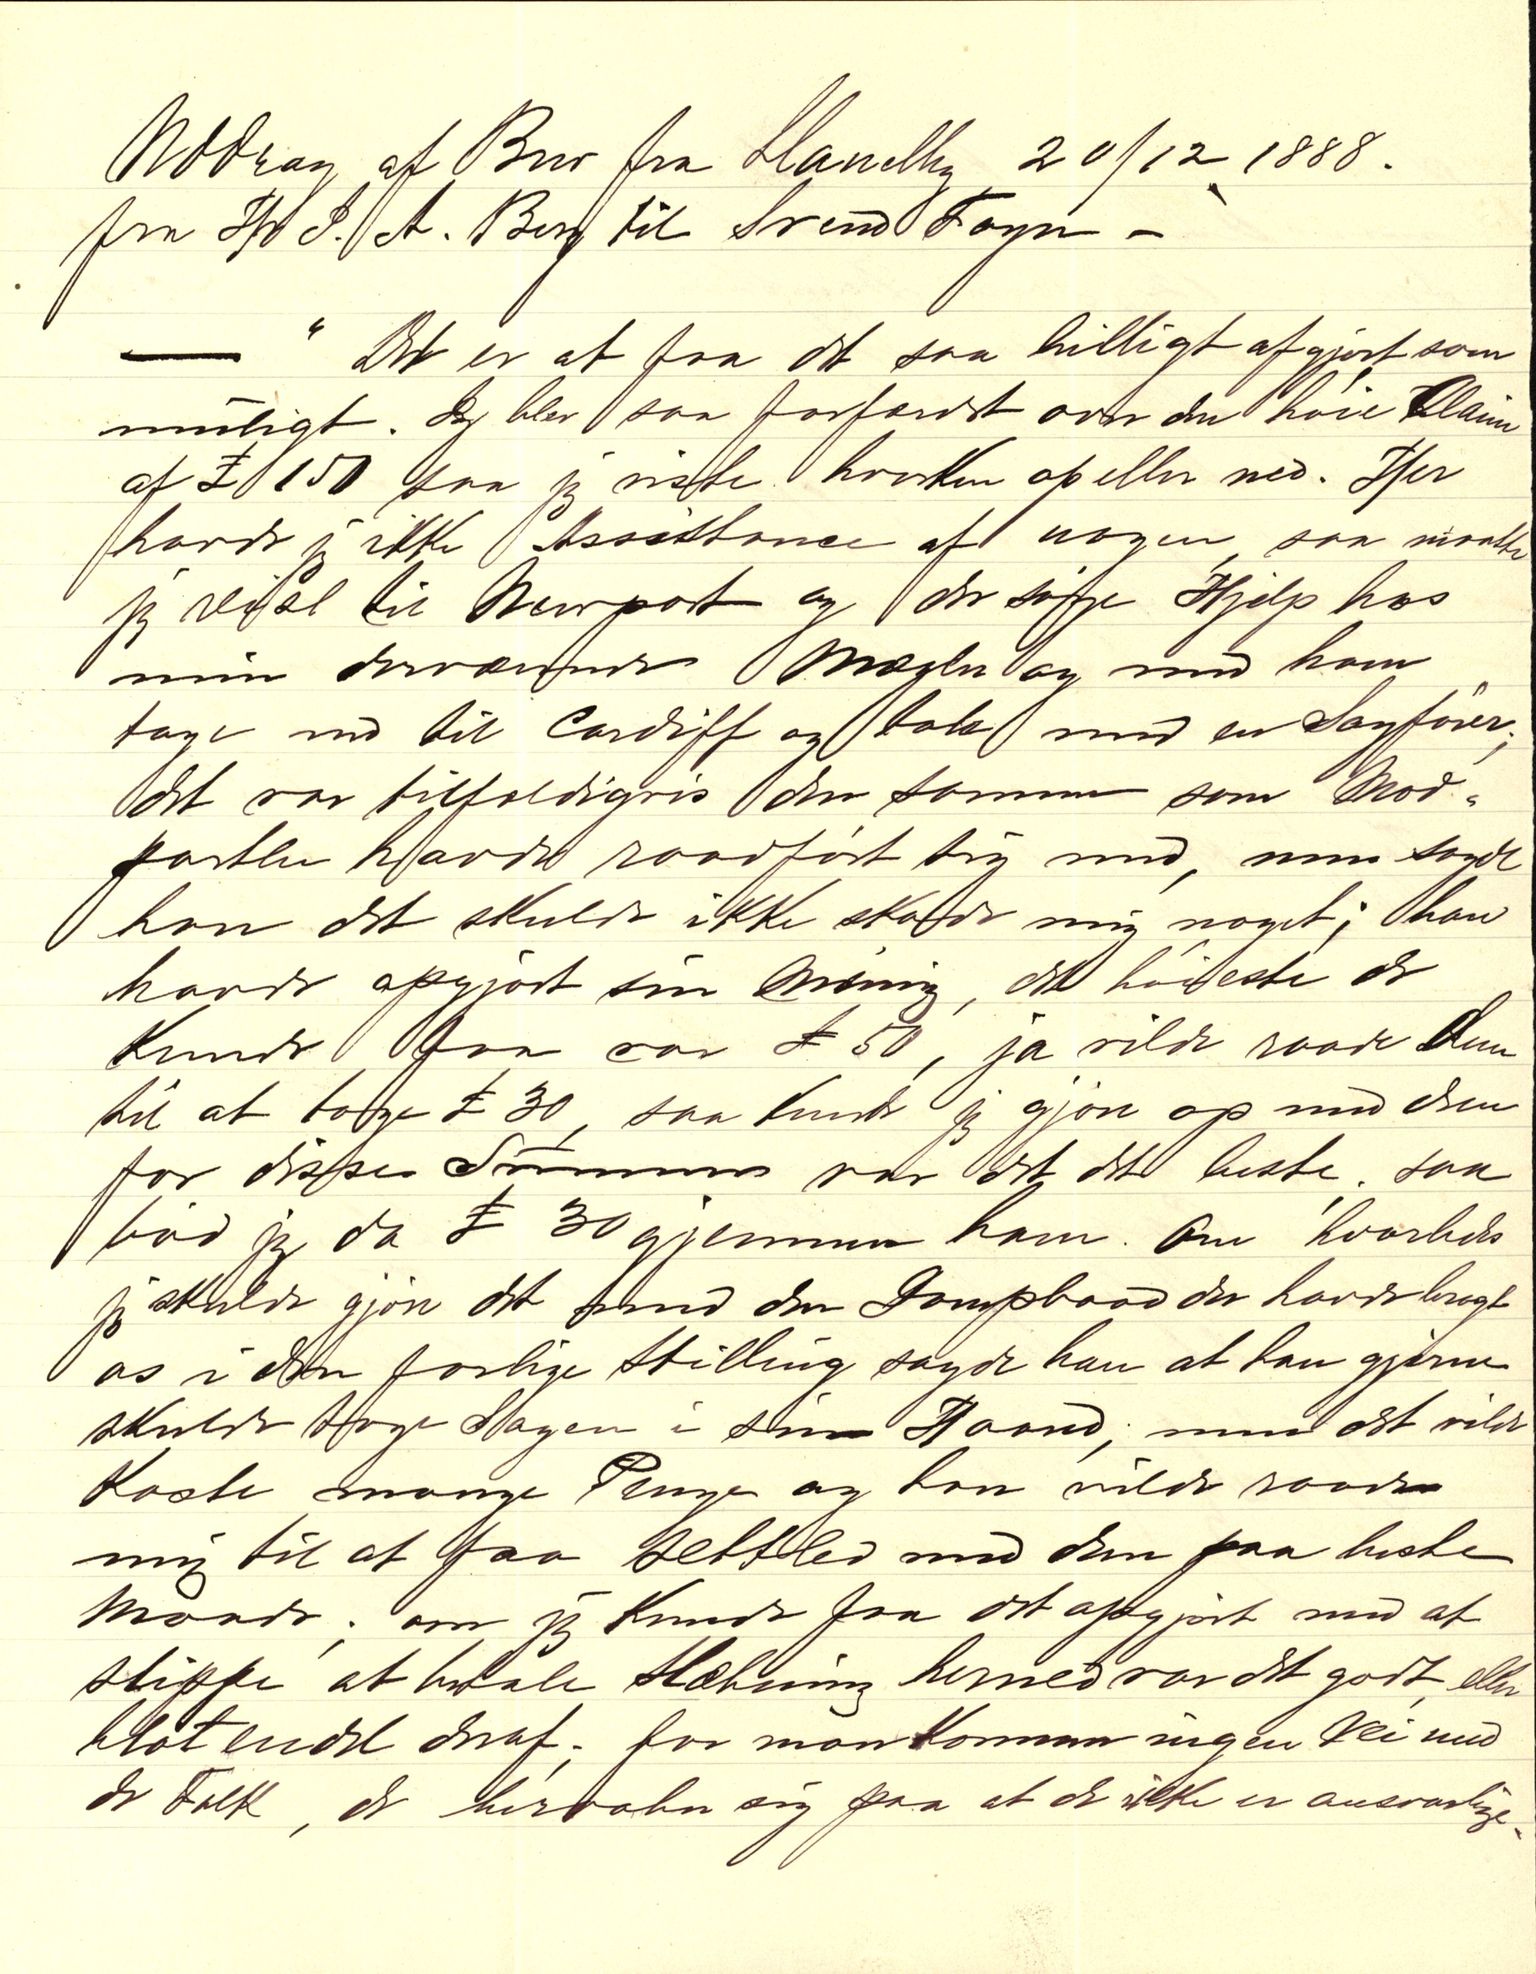 Uddrag af Brev fra Llanelly 20/12 1888.
fra Hr J. A. Berg til Svend Foyn –
— " Det er at faa det saa billigt afgjort som
muligt. Jeg blev saa forfærdet over den høie Claim
af £ 150 saa jeg viste hverken op eller ned. Her
havde jeg ikke Assistance af nogen, saa maatte
jeg reise til Newport og der søge Hjelp hos
min derværende Mægler og med ham
tage ned til Cardiff og tale med en Sagfører;
det var tilfældigvis den samme som Mod-
parten havde raadført sig med, men sagde
han det skulde ikke skade mig noget; han
havde opgjort sin Mening, det høieste de
kunde faa var £ 50, ja vilde raade dem
til at tage £ 30, saa kunde jeg gjøre op med dem
for disse Summer var det det beste. saa
bød jeg da £ 30 gjennem ham. Om hvorledes
jeg skulde gjøre det med den Dampbaad der havde bragt
os i den farlige Stilling sagde han at han gjerne
skulde tage Sagen i sin Haand, men det vilde
koste mange Penge og han vilde raade
mig til at faa settled med dem paa beste
Maade; om jeg kunde faa det opgjort med at
slippe at betale Slæbning herned var det godt, eller
blot endel deraf; for man kommer ingen Vei med
de Folk, de beraaber sig paa at de ikke er ansvarlige.